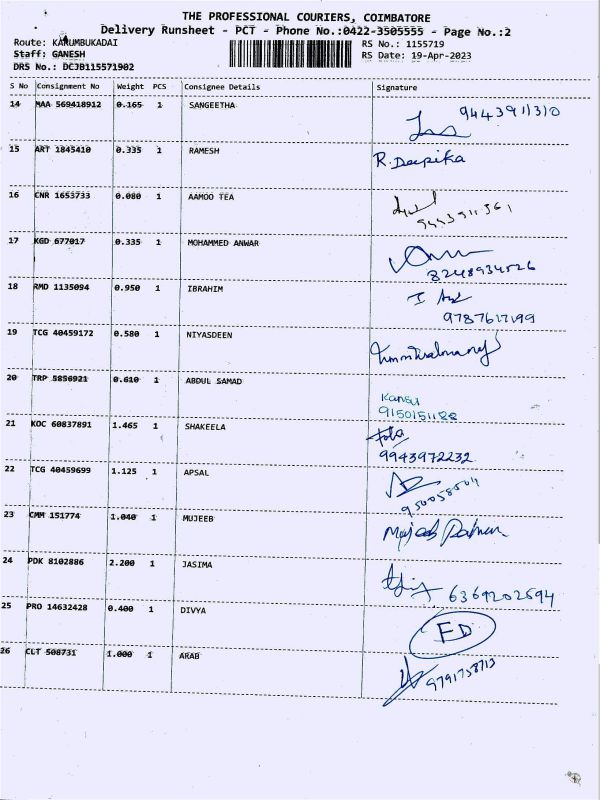 THE PROFESSIONAL COURIERS, COIMBATORE
Delivery Runsheet - PCT - Phone No.:0422-3505555 - Page No.:2
Route: KARUMBUKADAI RS No.: 1155719
Staff: GANESH RS Date: 19-Apr-2023
DRS No.: DCJB115571902
S No Consignment No Weight PCS Consignee Details Signature
14 MAA 569418912 0.165 1 SANGEETHA 9443911310
15 ART 1845410 0.335 1 RAMESH R. Deepika
16 CNR 1653733 0.080 1 AAMOO TEA 9443911361
17 KGD 677017 0.335 1 MOHAMMED ANWAR 8248934526
18 RMD 1135094 0.950 1 IBRAHIM 9787617199
19 TCG 40459172 0.580 1 NIYASDEEN
20 TRP 5856921 0.610 1 ABDUL SAMAD
9150151188
21 KOC 60837891 1.465 1 SHAKEELA
9943972232
22 TCG 40459699 1.125 1 APSAL
23 CMM 151774 1.040 1 MUJEEB
24 PDK 8102886 2.200 1 JASIMA 6369202594
25 PRO 14632428 0.400 1 DIVYA ED
26 CLT 508731 1.000 1 ARAB 9791758713